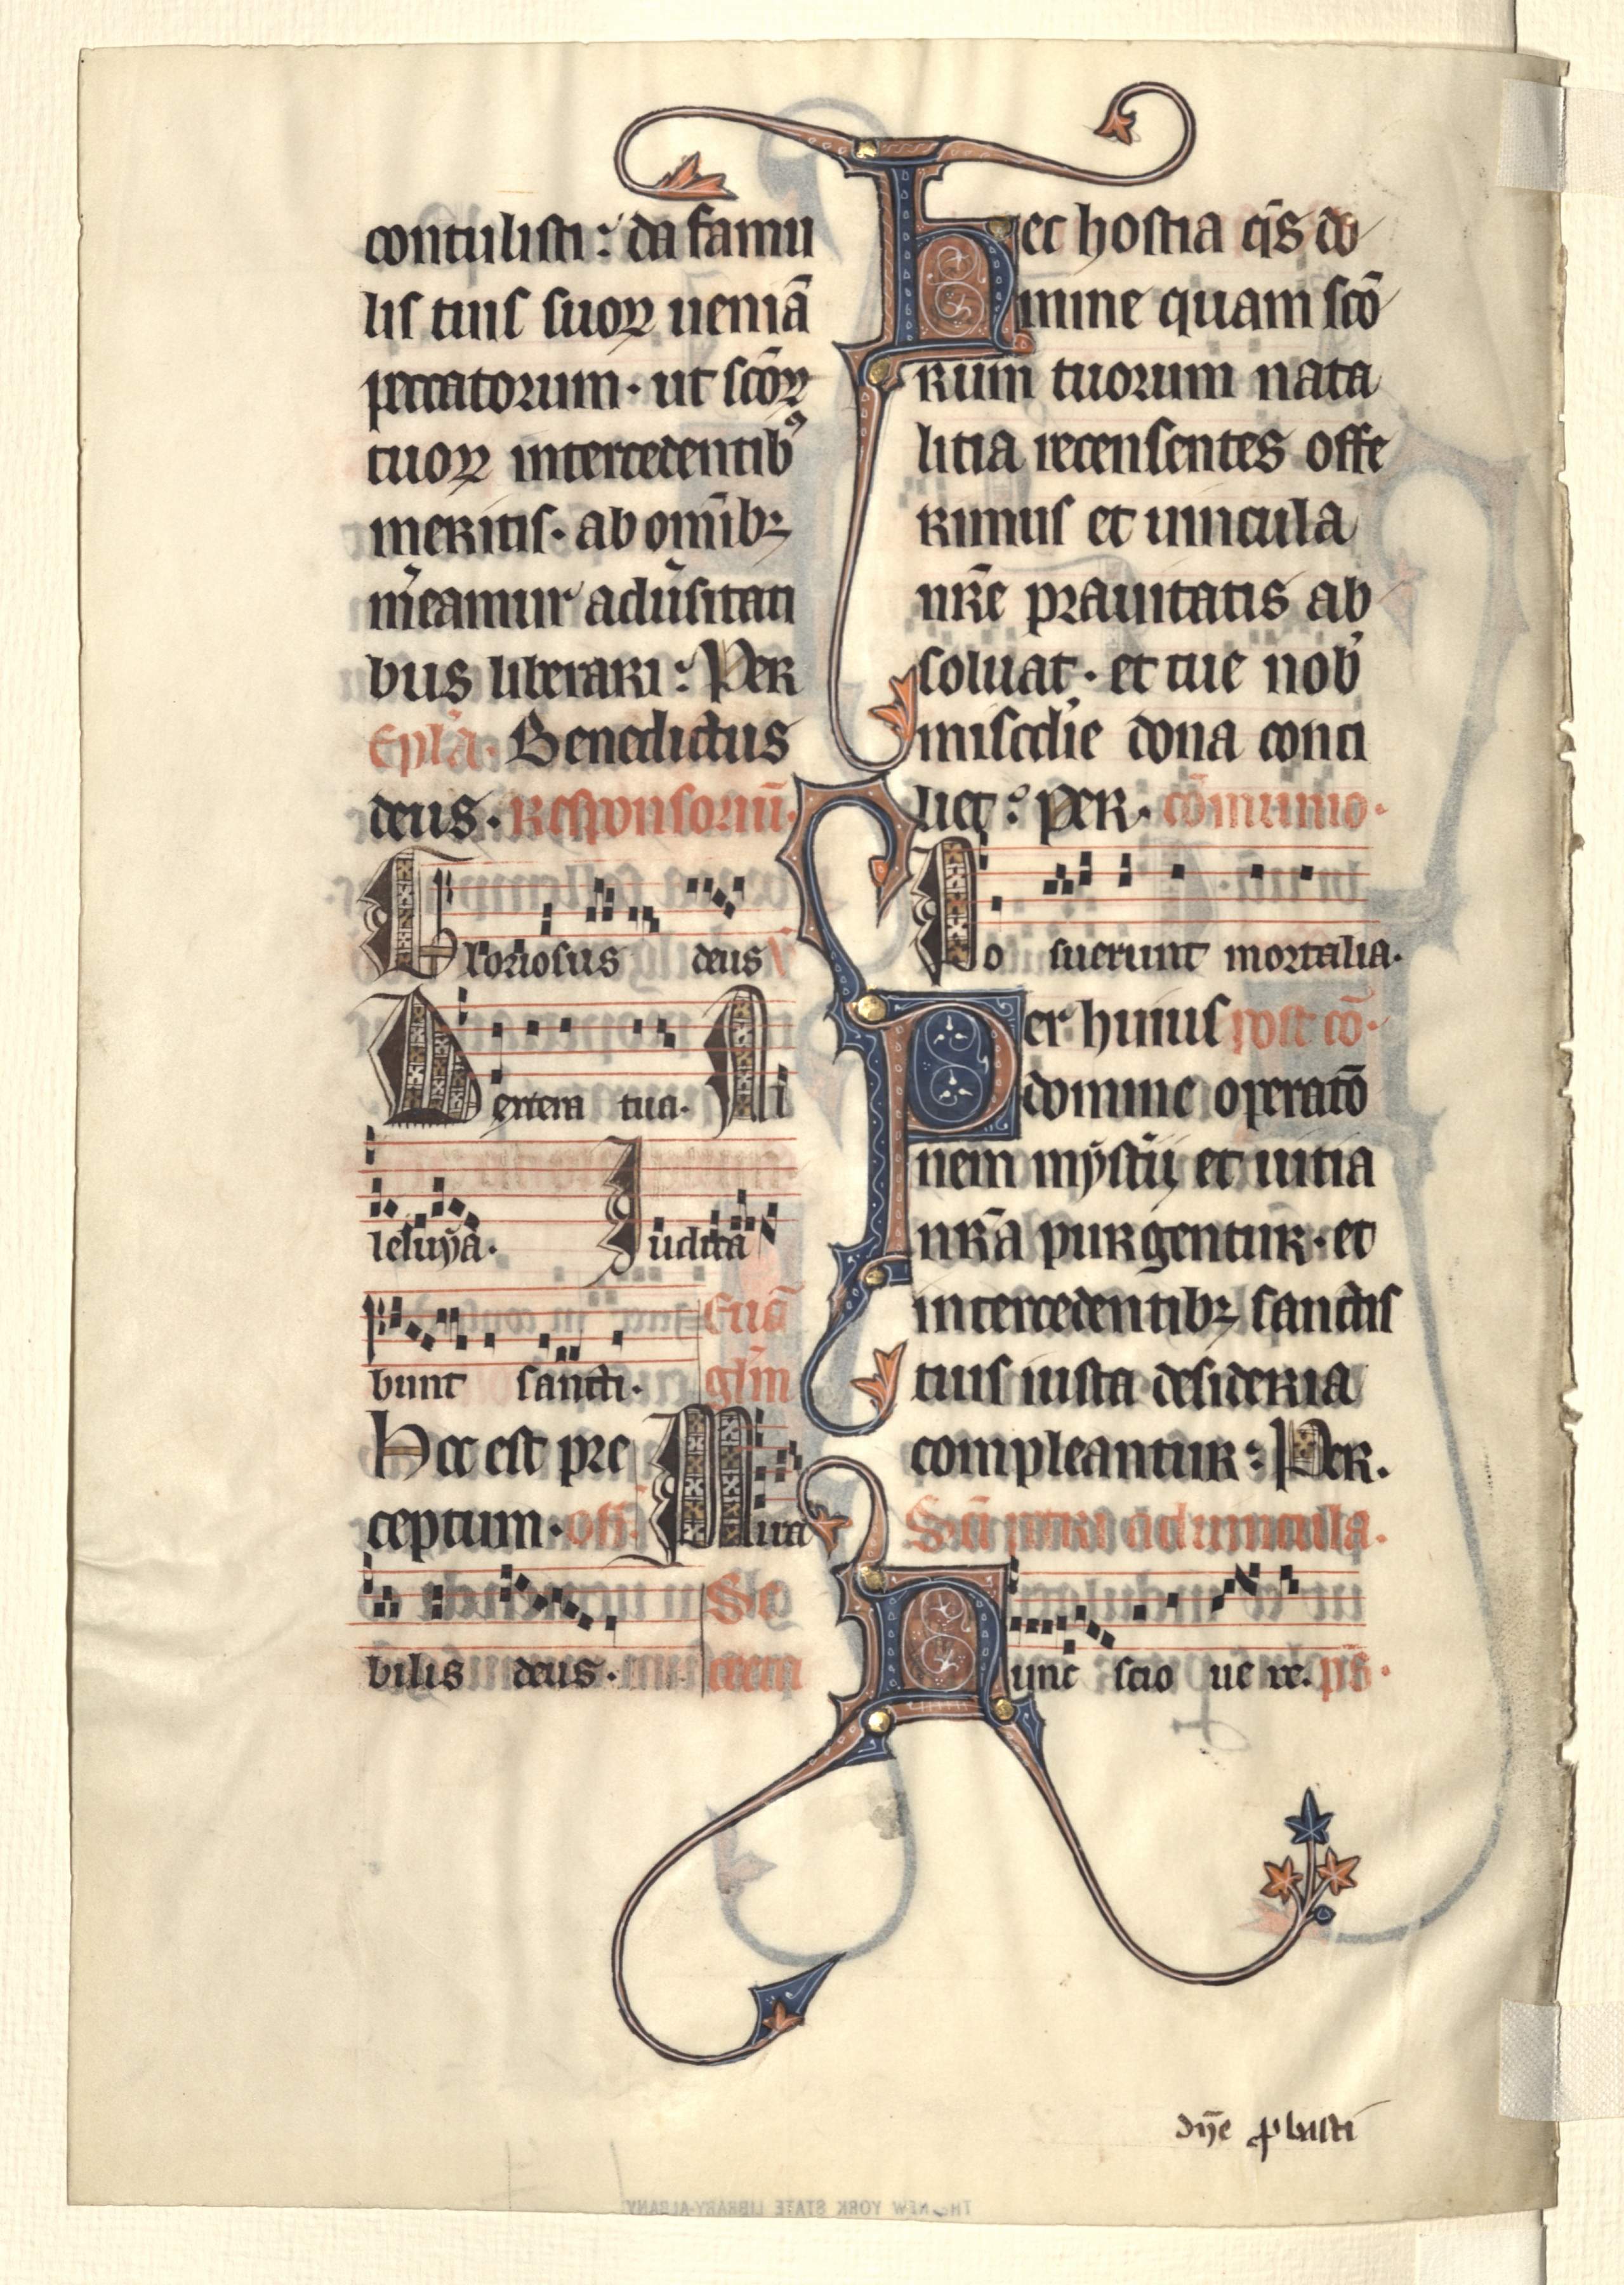 contulisti: da famu
lis tuis suoꝝ ueniā
peccatorum· ut scōꝝ
tuoꝝ intercedentibꝰ
meritis· ab omībꝫ
m̓eamur adu̓sitati
bus liberari: Per
Epl̄a· Benedictus
deus· Responsoriū·
Gloriosus deus
Dextera tua· Al
leluya· Iudica
bunt sancti· Euā
glm̄
Hec est pre
ceptum· off̄· Mira
bilis deus· Se
creta
Hec hostia q̄s do
mine quam scō
rum tuorum nata
litia recensentes offe
rimus et uincula
nr̄e prauitatis ab
soluat· et tue nob̓
mis̓cdie dona conci
liet: Per· cōmunio·
Posuerunt mortalia·
Per huius post cō·
domine operatō
nem mysťij et uitia
nr̄a purgentur· et
intercedentibꝫ sanctis
tuis iusta desideria
compleantur: Per·
Sc̄i petri ad uincula·
Nunc scio ue re· ps·
dn̄e ꝓbasti
THE NEW YORK STATE LIBRARY-ALBANY